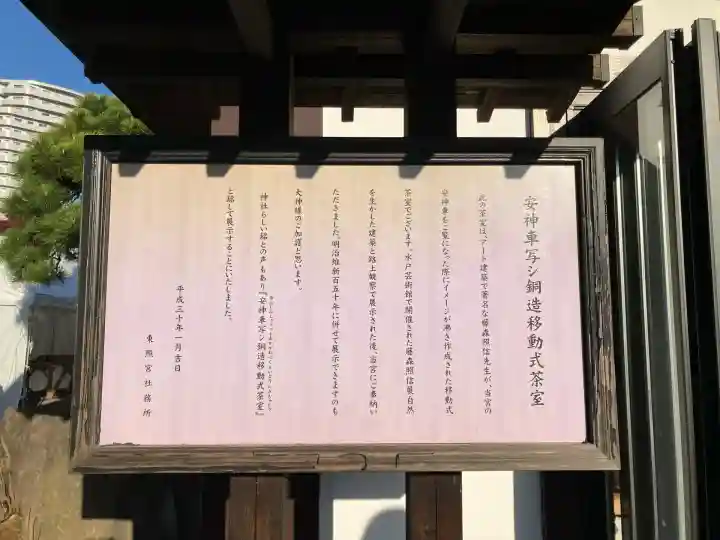 安神車写シ銅造移動式茶室
此の茶室は、アート建築で著名な藤森照信先生が、当宮の
安神車をご覧になった際にイメージが湧き作成された移動式
茶室でございます。水戸芸術館で開催された藤森照信展自然
を生かした建築と路上観察で展示された後、当宮にご奉納い
ただきました。明治維新百五十年に併せて展示できますのも
大神様のご加護と思います。
神社らしい銘との声もあり『安神車写シ銅造移動式茶室』
と銘して展示することにいたしました。
平成三十年一月吉日
東照宮社務所